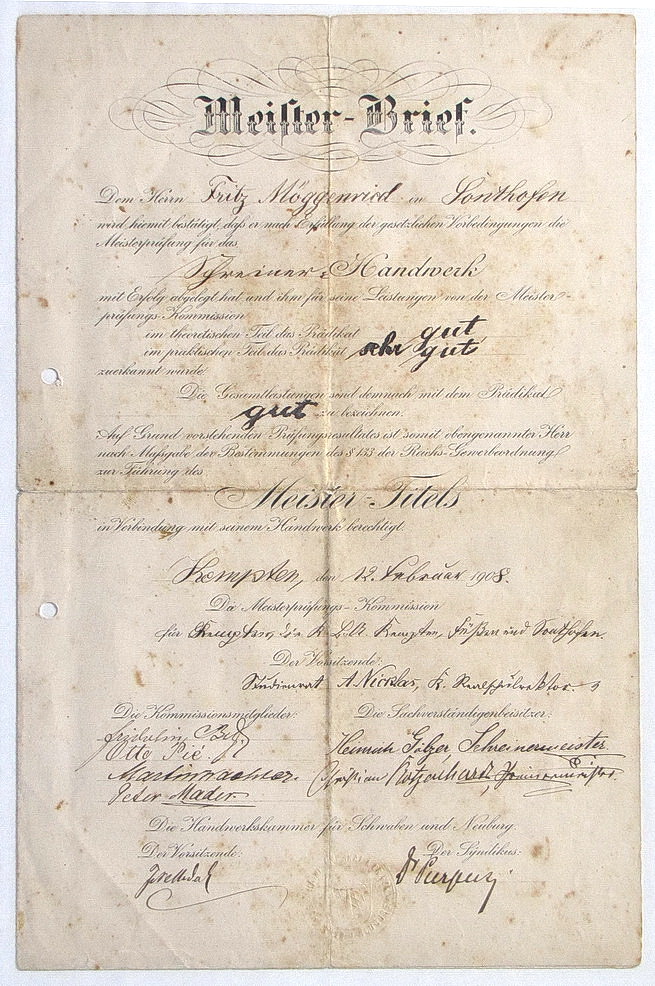 Meister-Brief.
Dem Herrn Fritz Möggenried in Sonthofen
wird hiemit bestätigt, daß er nach Erfüllung der gesetzlichen Vorbedingungen die
Meisterprüfung für das
Schreiner-Handwerk
mit Erfolg abgelegt hat und ihm für seine Leistungen von der Meister-
prüfungs-Kommission
im theoretischen Teil das Prädikat gut
im praktischen Teil das Prädikat sehr gut
zuerkannt wurde
Die Gesamtleistungen sind demnach mit dem Prädikat
gut zu bezeichnen.
Auf Grund vorstehenden Prüfungsresultates ist somit obengenannter Herr
nach Maßgabe der Bestimmungen des § 133 der Reichs-Gewerbeordnung
zur Führung des
Meister-Titels
in Verbindung mit seinem Handwerk berechtigt.
Kempten, den 12. Februar 1908.
Die Meisterprüfungs-Kommission
für Kempten, die K. B.A. Kempten, Füßen und Sonthofen.
Der Vorsitzende:
Studienrat A. Nicklas, K. Realschulrektor.
Die Kommissionsmitglieder: Die Sachverständigenbeisitzer:
Otto Schreinermeister
Martin Christian
Peter Mader.
Die Handwerkskammer für Schwaben und Neuburg.
Der Vorsitzende: Der Syndikus:
Dr